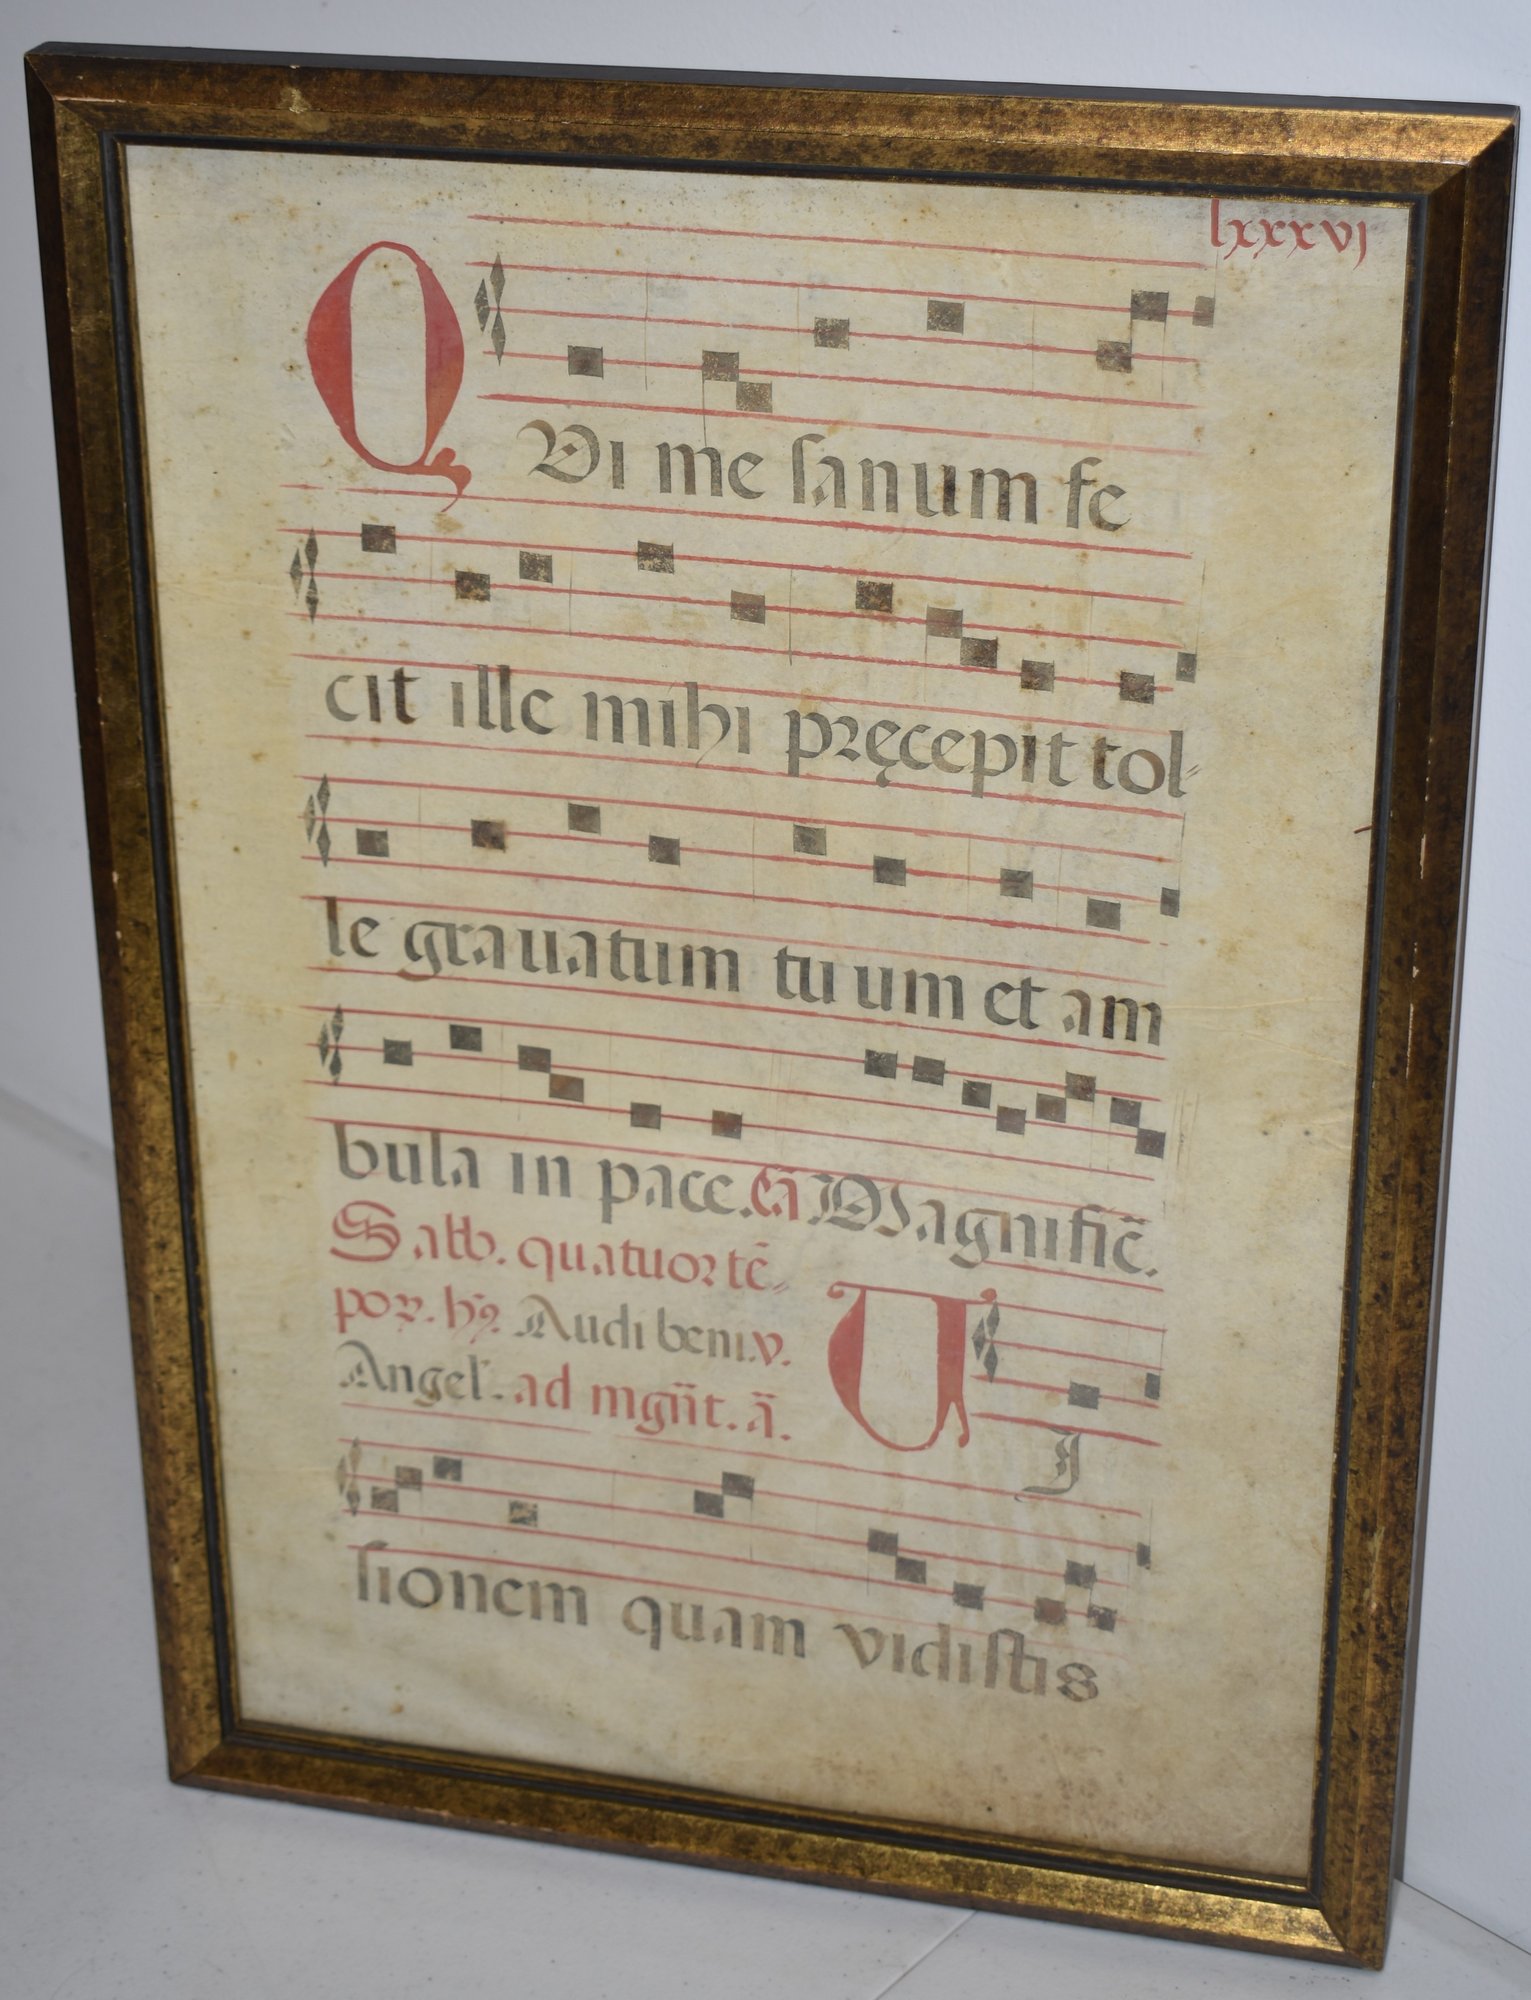 lxxxvj
QVi me sanum fe
cit ille mihi pręcepit tol-
le grauatum tuum et am
bula in pace. Eã Magnific̃.
Sabb. quatuor tẽ-
por. hỹ. Audi beni. v.
Angel. ad mgñt. ã.
VI
sionem quam vidistis